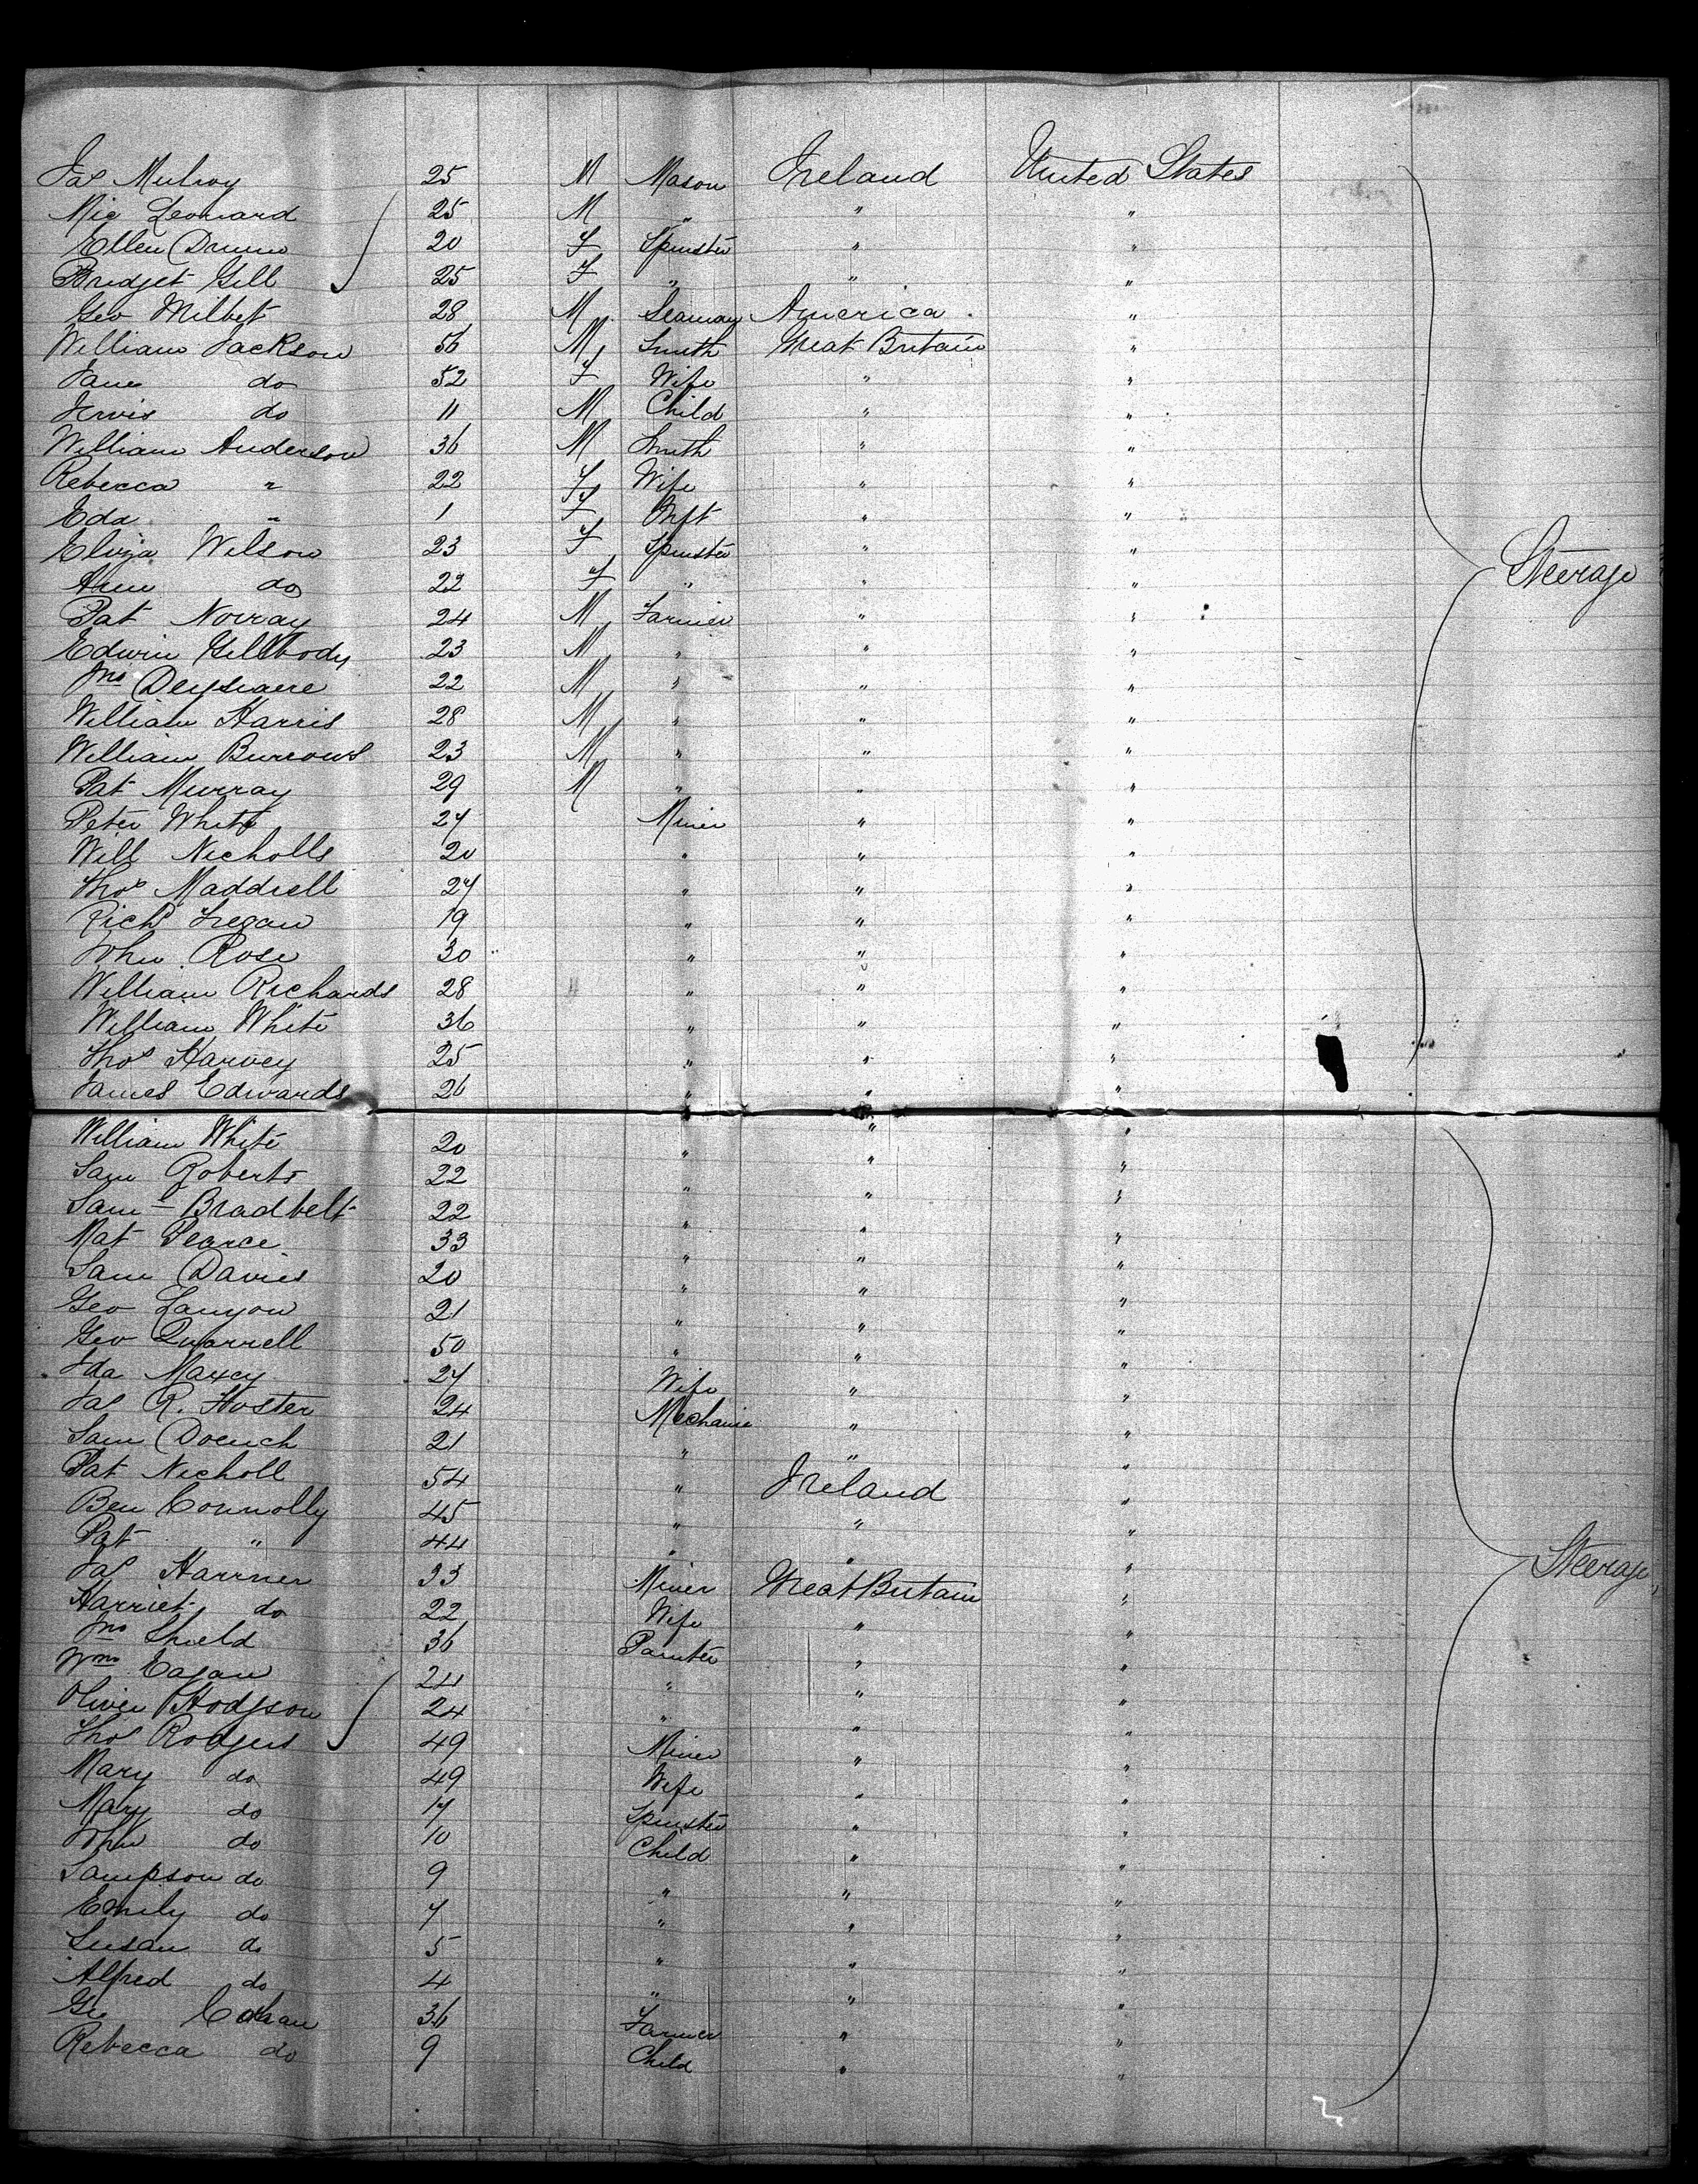 Jas Mulroy 25 M Mason Ireland United States
Mic Leonard 25 M " " "
Ellen 20 F Spinster " "
Bridget Gill 25 F " " "
Geo Milbet 28 M Seaman America "
William Jackson 56 M Smith Great Britain "
Jane do 52 F Wife " "
Jervis do 11 M Child " "
William Anderson 36 M Smith " "
Rebecca " 22 F Wife " "
Eda " 1 F Inft " "
Eliza Wilson 23 F Spinster " "
Ann do 22 F " " "
Steerage
Pat Norray 24 M Farmer " "
Edwin Gillbody 23 M " " "
Jno 22 M " " "
William Harris 28 M " " "
William Burrows 23 M " " "
Pat Murray 29 M " " "
Peter White 27 Miner " "
Will Nicholls 20 " " "
Thos Maddrell 27 " " "
Richd Tregan 19 " " "
John Rose 30 " " "
William Richards 28 " " "
William White 36 " " "
Thos Harvey 25 " " "
James Edwards 26 " " "
William White 20 " " "
Sam Roberts 22 " " "
Saml Bradbelt 22 " " "
Mat Pearce 33 " " "
Sam Davies 20 " " "
Geo Lanyon 21 " " "
Geo Quarrell 50 " " "
Ida Maxcy 27 Wife " "
Jas R. Foster 24 Mechanic " "
Sam Doench 21 " " "
Pat Nicholl 54 " Ireland "
Ben Connolly 45 " " "
Pat " 44 " " "
Steerage
Jas Harrner 33 Miner Great Britain "
Harriet do 22 Wife " "
Jno Shield 36 Painter " "
Wm Eagan 24 " " "
Oliver Hodgson 24 " " "
Thos Rodgers 49 Miner " "
Mary do 49 Wife " "
Mary do 17 Spinster " "
John do 10 Child " "
Sampson do 9 " " "
Emily do 7 " " "
Susan do 5 " " "
Alfred do 4 " " "
Geo 36 Farmer " "
Rebecca do 9 Child " "